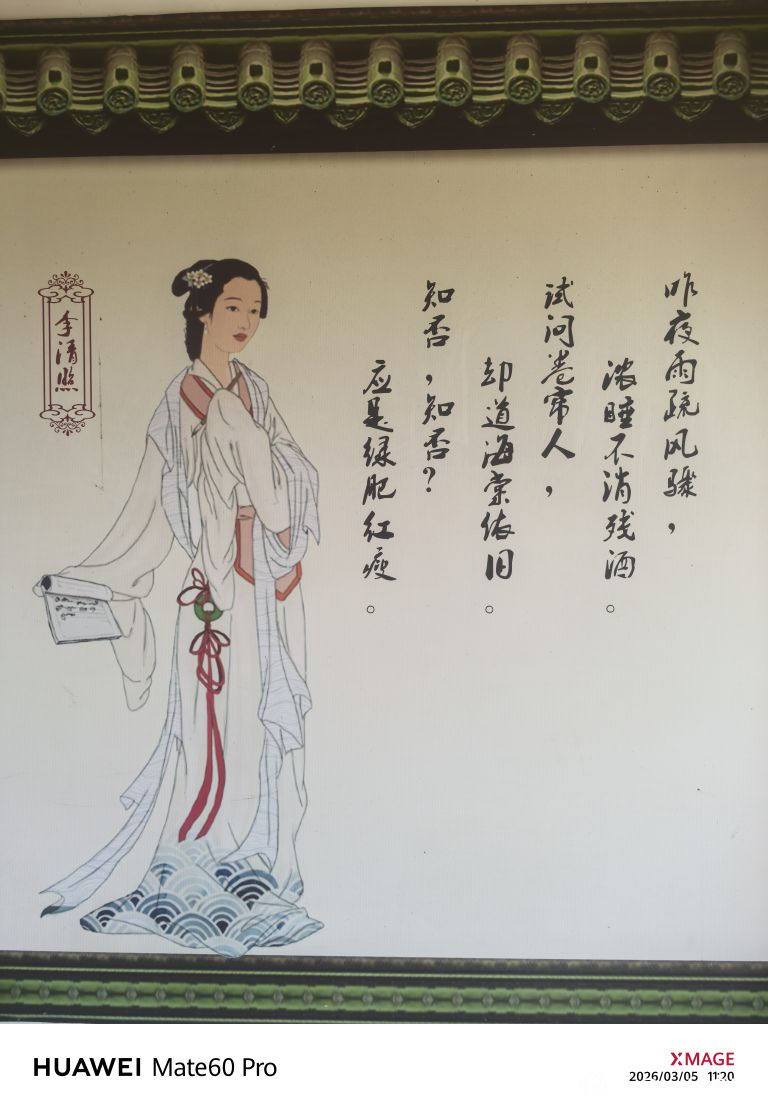 昨夜雨疏风骤，
浓睡不消残酒。
试问卷帘人，
却道海棠依旧。
知否，知否？
应是绿肥红瘦。
李清照
HUAWEI Mate60 Pro
XMAGE
2026/03/05 11:20